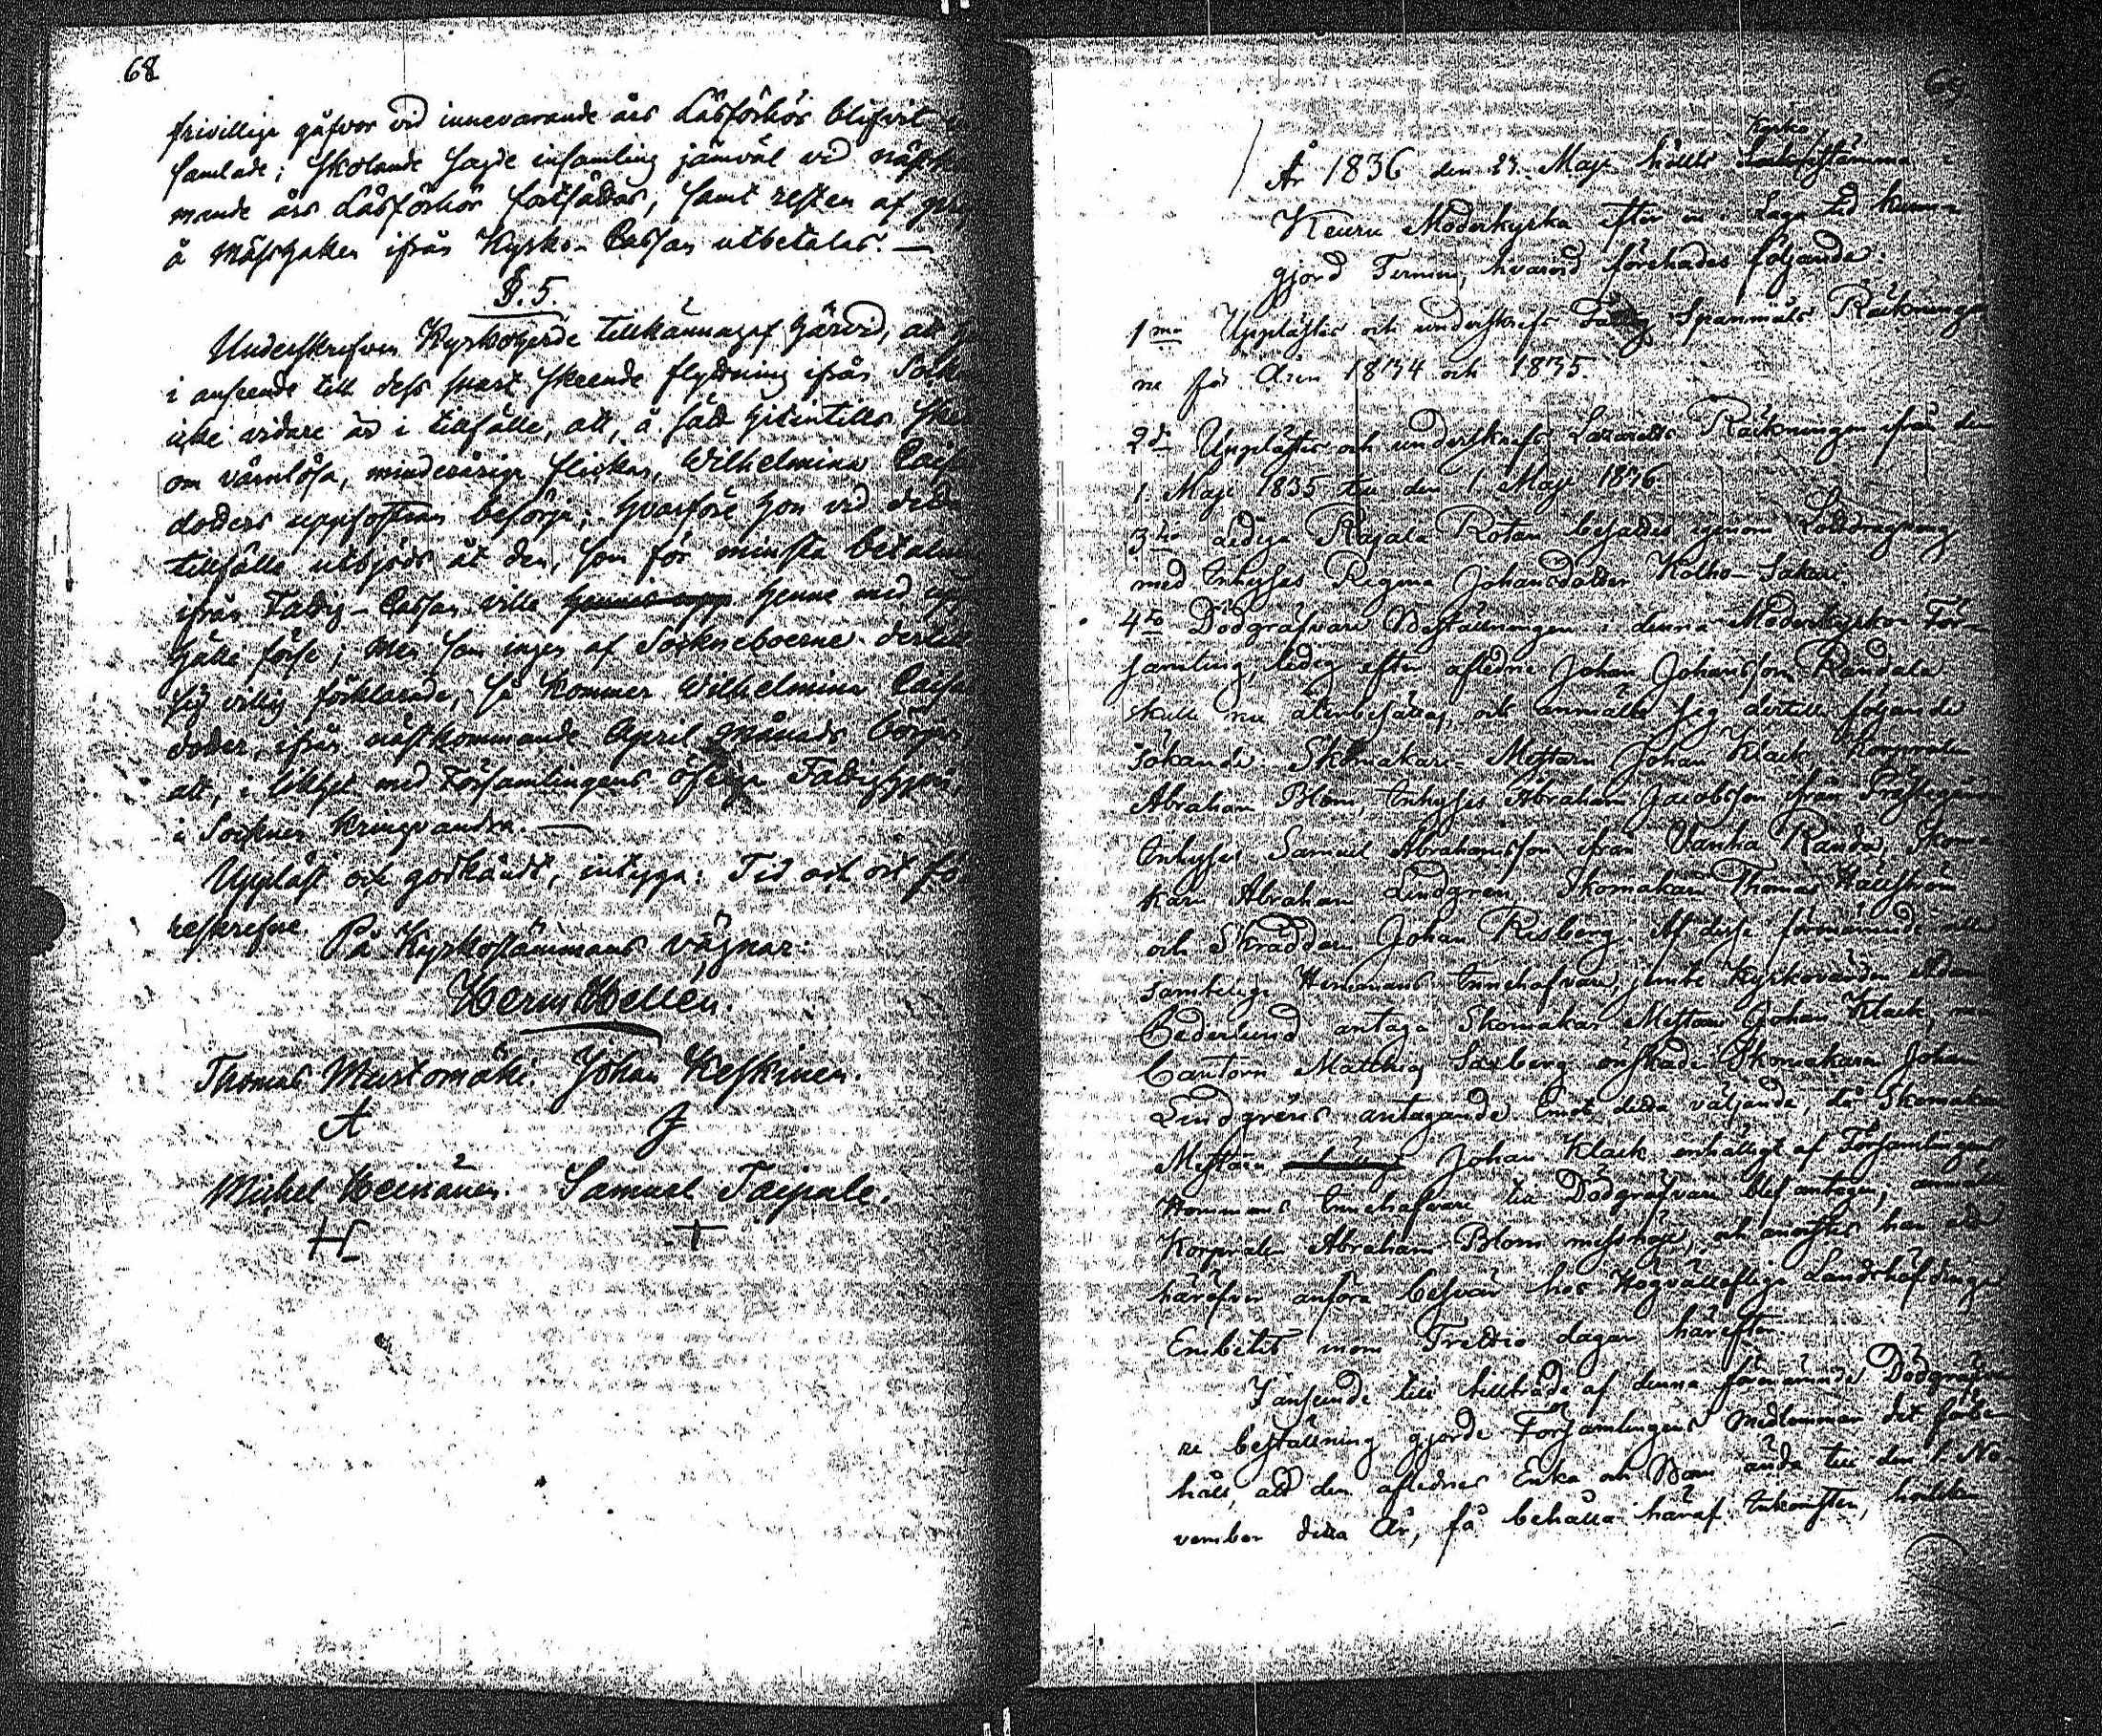 68
frivillige gåfvor vid innevarande års Läsförhör blifvit
samlade; skolande sagde insamling jämväl vid nästkom
mande års Läsförhör fortsättas, samt resten af
å mässhaken ifrån Kyrko-Cassan utbetalas. —
§. 5.
Underskrefven Kyrkoherde tillkännagaf härvid, att
i anseende till dess snart skeende flyttning ifrån Sock
icke vidare är i tillfälle, att, å sätt hitintills sked
om värnlösa, minderåriga flickan, Wilhelmina Caisa
dotters uppfostran besörja; hvarföre hon vid detta
tillfälle utbjöds åt den, som för minsta betalning
ifrån Fattig-Cassan ville hennes upp henne med upp
hälle förse; men som ingen af Socknеboerne dertill
sig villig förklarade, så kommer Wilhelmina Caisa
dotter, ifrån nästkommande April månads början,
att, i likhet med Församlingens öfriga Fattighjon,
i Socknen kringvandra. —
Uppläst och godkändt, intyga: Tid och ort fö
reskrefne.
På Kyrkostämmans vägnar:
Herm Hellén.
Thomas Mustomäki. Johan Keskinen.
A J
Michel Heinänen. Samuel Taipale.
H +
69
Kyrko
År 1836 den 23 Maji hölls Sockenstämma i
Keuru Moderkyrka efter in Laga tid kunn-
gjord Termin, hvarvid förehades följande:
1mo Upplästes och underskrefs Fattig Spannmåls Räkninga
ne för Åren 1834 och 1835.
2do Upplästes och underskrefs Lazaretts Räkningen ifrån den
1 Maji 1835 till den 1 Maji 1836
3tio Lediga Rajala Rotan besattes igenom Lottdragning
med Inhyses Regina Johansdotter Kolho-Sakari.
4to Dödgräfvare Beställningen i denna Moderkyrko För-
samling, ledig efter afledne Johan Johansson Randala
skulle nu återbesättas, och anmälte sig dertill följande
sökande: Skomakare-Mestarn Johan Klack, Korporalen
Abraham Blom, Inhyses Abraham Jacobsson ifrån Prästegården
Inhyses Samuel Abrahamsson ifrån Vanha Randa, Skoma
karn Abraham Lindgren, Skomakarn Thomas Hallström
och Skräddarn Johan Risberg. Af desse förenämnde ville
samtelige Hemmans Innehafvare, jemte Kyrkovärden Adam
Cederlund antaga Skomakar Mestarn Johan Klack, men
Cantorn Matthias Saxberg önskade Skomakarn Johan
Lindgréns antagande. Emot detta väljande, då Skomakare
Mestarn Johan Klack enhälligt af Församlingens
Hemmans Innehafvare till Dödgräfvare blef antagen, anmälte
Korporalen Abraham Blom misshöje, och anvistes han att
häröfver anföra besvär hos Högvällofliga Landshöfdinge
Embetet inom Trettio dagar härefter.
I anseende till tillträde af denna förenämnde Dödgräfva
re beställning gjorde Församlingens Medlemmar det förbe
håll, att den aflednes Enka och Barn ända till den 1 No-
vember detta År, få behålla häraf Inkomsten, hvilken